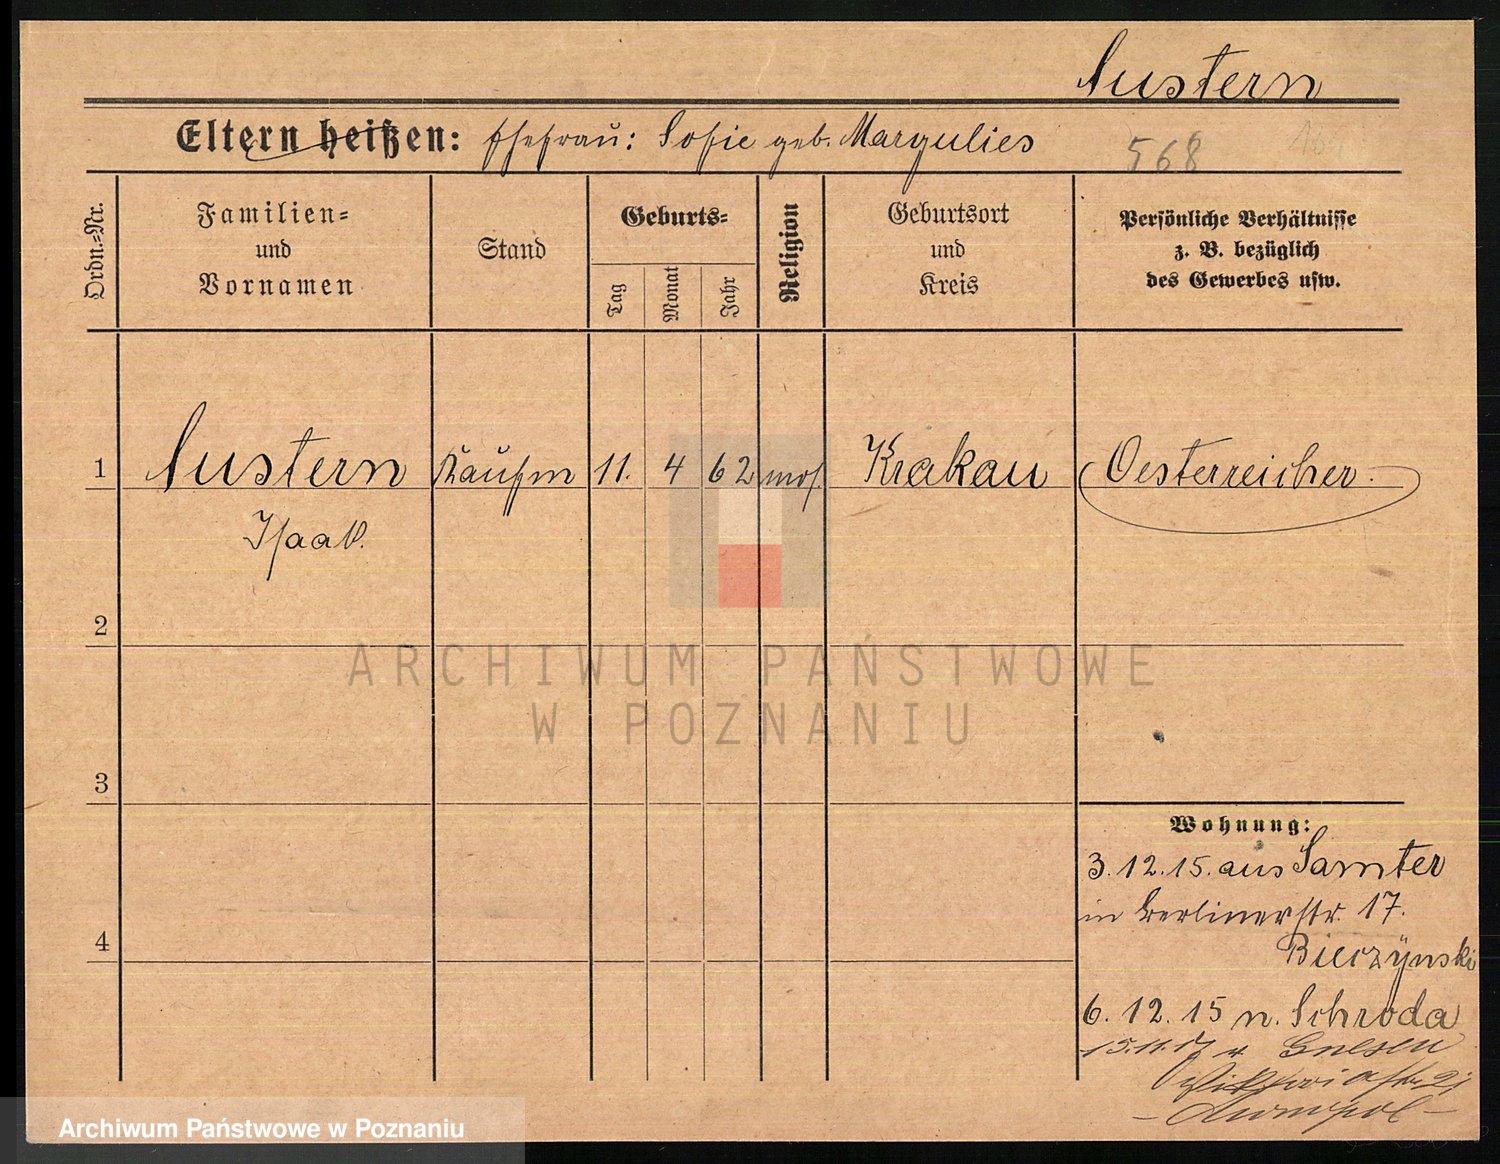 Austern
Eltern heißen: Ehefrau: Sofie geb. Margulies
568
Ordn.-Nr.
Familien-
und
Vornamen
Stand
Geburts-
Tag
Monat
Jahr
Religion
Geburtsort
und
Kreis
Persönliche Verhältnisse
z. B. bezüglich
des Gewerbes usw.
1 Austern Kaufm 11. 4 62 mos. Krakau Oesterreicher
Isaak.
2
ARCHIWUM PAŃSTWOWE
W POZNANIU
3
Wohnung:
3.12.15. aus Samter
in Berlinerstr. 17.
Bieczÿnski
4
6.12.15 n. Schroda
15.11.17 v. Gnesen
Viktoriastr. 21
Archiwum Państwowe w Poznaniu